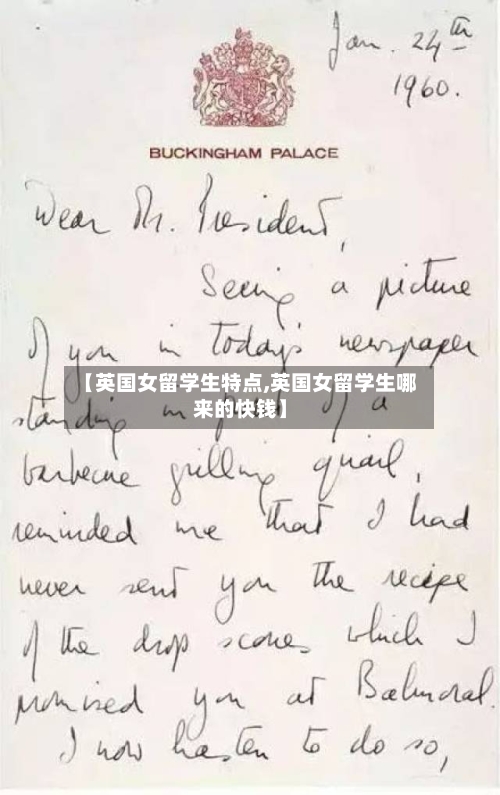 Jan. 24th
1960.
BUCKINGHAM PALACE
Dear Mr. President,
Seeing a picture
of you in today's newspaper
【英国女留学生特点,英国女留学生哪
来的快钱】
standing in of a
barbecue grilling quail,
reminded me that I had
never sent you the recipe
of the drop scones which I
promised you at Balmoral.
I now hasten to do so,